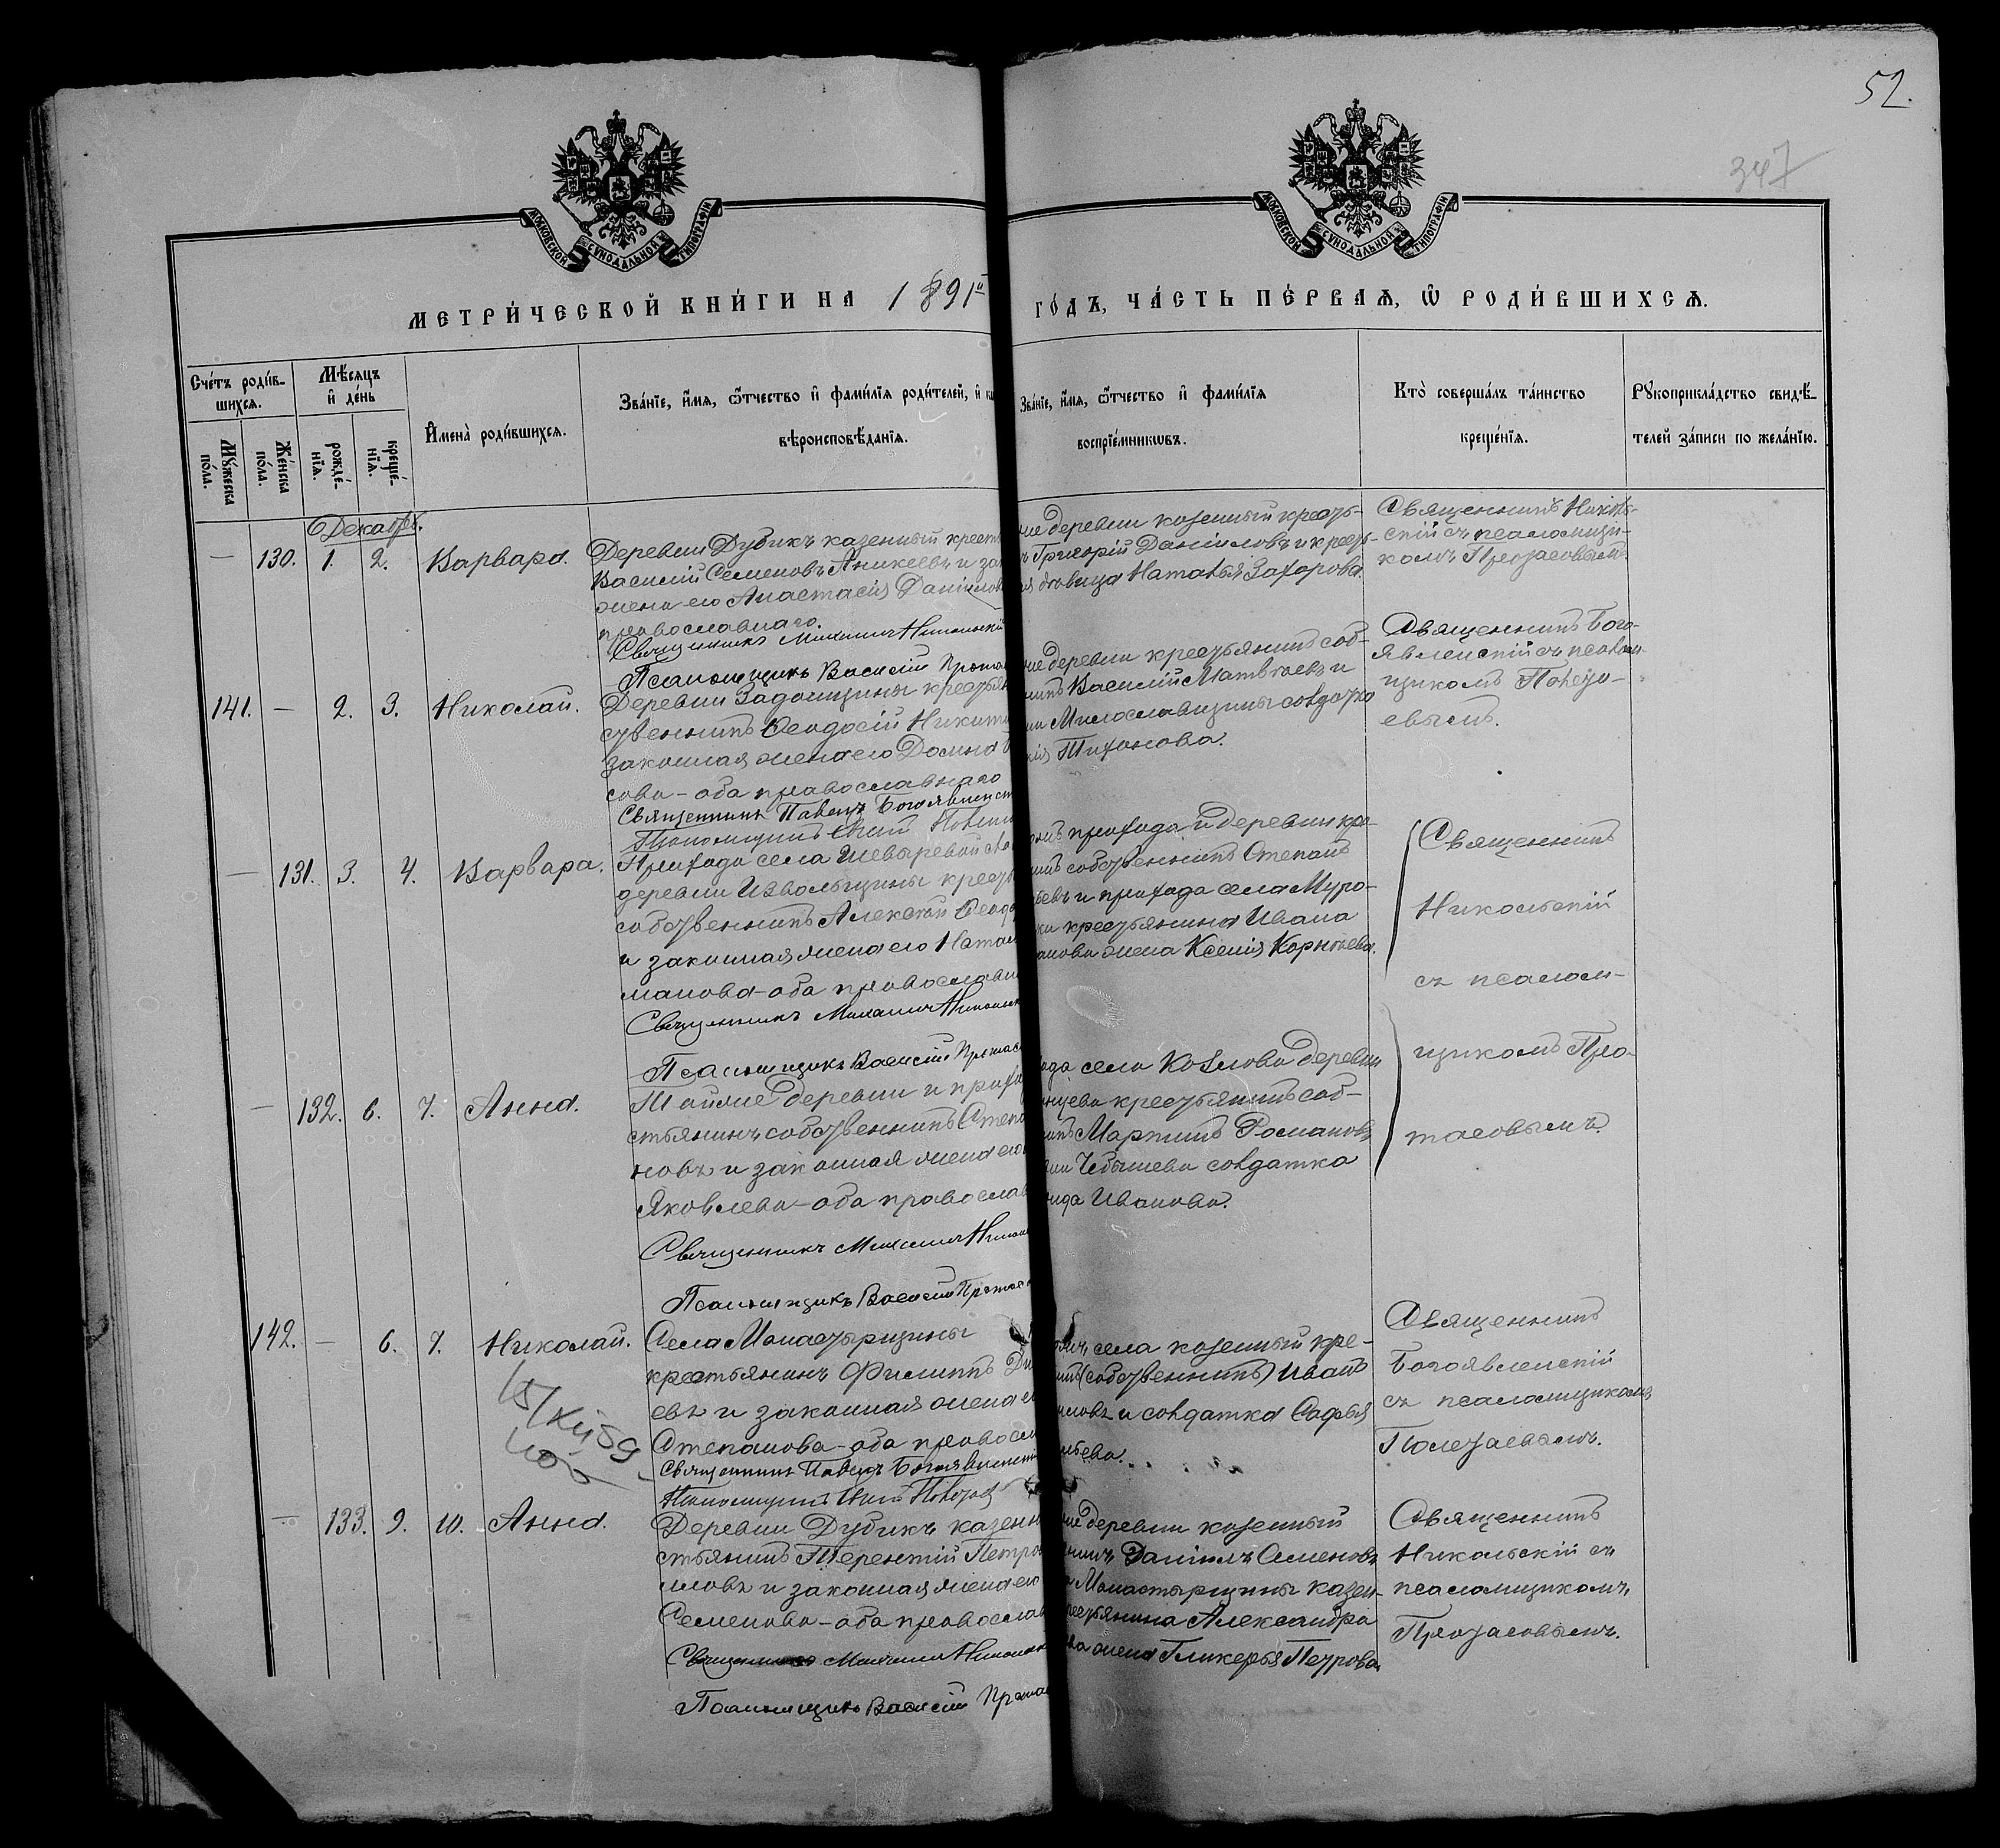 52.
347
МОСКОВСКОЙ СѴНОДАЛЬНОЙ ТИПОГРАФІИ
МОСКОВСКОЙ СѴНОДАЛЬНОЙ ТИПОГРАФІИ
МЕТРИ́ЧЕСКОЙ КНИ́ГИ НА 1891й
ГО́ДЪ, ЧА́СТЬ ПЕ́РВАѦ, Ѽ РОДИ́ВШИХСѦ.
Сче́тъ роди́в-
шихсѧ.
Мꙋжеска
по́ла.
Же́нска
по́ла.
Мѣ́сѧцъ
и҆ де́нь
рожде́-
нїѧ.
креще́-
нїѧ.
И҆мена̀ роди́вшихсѧ.
Зва́нїе, и҆́мѧ, ѻ҆́тчество и҆ фами́лїѧ роди́телей, и҆
вѣроисповѣ́данїѧ.
Зва́нїе, и҆́мѧ, ѻ҆́тчество и҆ фами́лїѧ
воспрїе́мникѡвъ.
Кто̀ соверша́лъ та́инство
креще́нїѧ.
Рꙋкоприкла́дство свидѣ́-
телей за́писи по жела́нїю.
Декабрь.
— 130. 1. 2. Варвара.
Деревни Дубикъ казенный крест
Василій Семеновъ Аникеевъ и зак
жена его Анастасія Данилов
православнаго.
Священникъ Михаилъ Никольскій
Псаломщикъ Василій Протас
деревни казенный кресть-
Григорій Даніиловъ и кресть-
вдовица Наталья Захарова.
Священникъ Николь-
скій съ псаломщи-
комъ Протасовымъ.
141. — 2. 3. Николай.
Деревни Задонщины крестьян
ственникъ Ѳеодосій Никит
законная жена его Домна
сова – оба православнаго
Священникъ Павелъ Богоявленск
Псаломщикъ
деревни крестьянинъ соб-
Василій Матвѣевъ и
Милославщины солдатка
Тихонова.
Священникъ Бого-
явленскій съ псалом-
щикомъ Полежа-
евымъ.
— 131. 3. 4. Варвара.
Прихода села Шевыревой
деревни Извольщины крест
собственникъ Алексѣй Ѳеодо
и законная жена его Натал
манова – оба православн
Священникъ Михаилъ Никольск
Псаломщикъ Василій Протас
прихода и деревни кре-
собственникъ Степанъ
и прихода села Муро-
крестьянина Ивана
жена Ксенія Корнѣева.
Священникъ
Никольскій
съ псалом-
щикомъ Про-
тасовымъ.
— 132. 6. 7. Анна.
Тойже деревни и прихо
стьянинъ собственникъ Степа
новъ и законная жена его
Яковлева – оба православ
Священникъ Михаилъ Никол
Псаломщикъ Василій Протас
села Козлова деревни
крестьянинъ соб-
Мартинъ Романовъ
Чебышева солдатка
Иванова.
142. — 6. 7. Николай.
15/XII 59
Села Монастырщины
крестьянинъ Филиппъ Ди
евъ и законная жена е
Степанова – оба правосл
Священникъ Павелъ Богоявленскій
Псаломщикъ
села казенный кре-
(собственникъ) Иванъ
и солдатка Софья
Священникъ
Богоявленскій
съ псаломщикомъ
Полежаевымъ.
— 133. 9. 10. Анна.
Деревни Дубикъ казенн
стьянинъ Терентій Петро
иловъ и законная жена его
Семенова – оба православ
Священникъ Михаилъ Никольск
Псаломщикъ Василій Протас
деревни казенный
Даніилъ Семеновъ
Монастырщины казен-
крестьянина Александра
жена Гликерья Петрова.
Священникъ
Никольскій съ
псаломщикомъ
Протасовымъ.